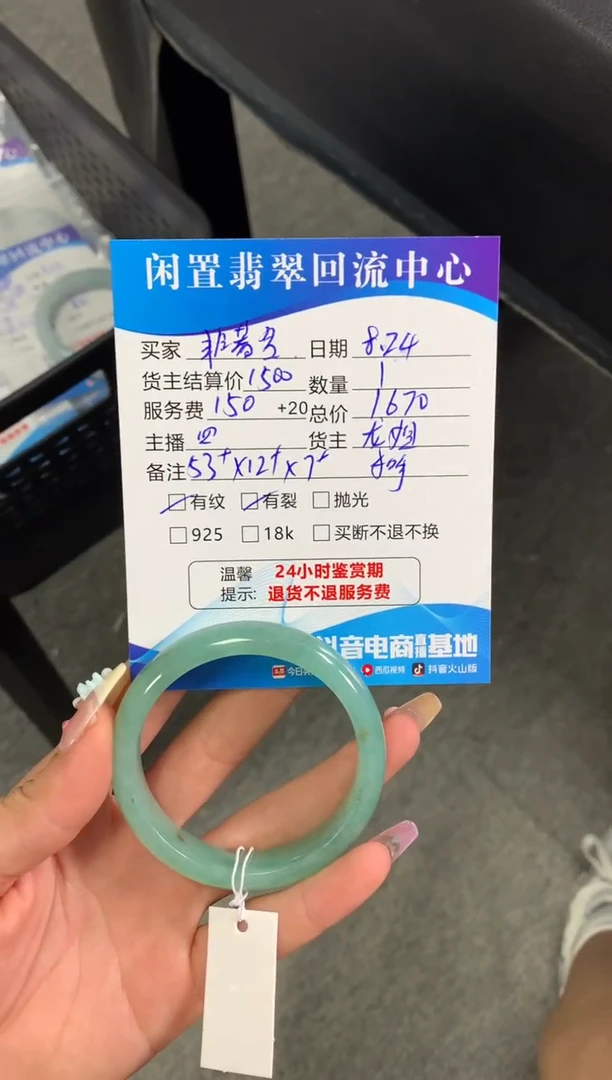 闲置翡翠回流中心
买家 日期 8.24
货主结算价 1500 数量 1
服务费 150 +20 总价 1670
主播 四 货主 龙姐
备注 53+X12+X7+
有纹 有裂 抛光
925 18k 买断不退不换
温馨提示: 24小时鉴赏期
退货不退服务费
抖音电商直播基地
西瓜视频 抖音火山版
回流中心